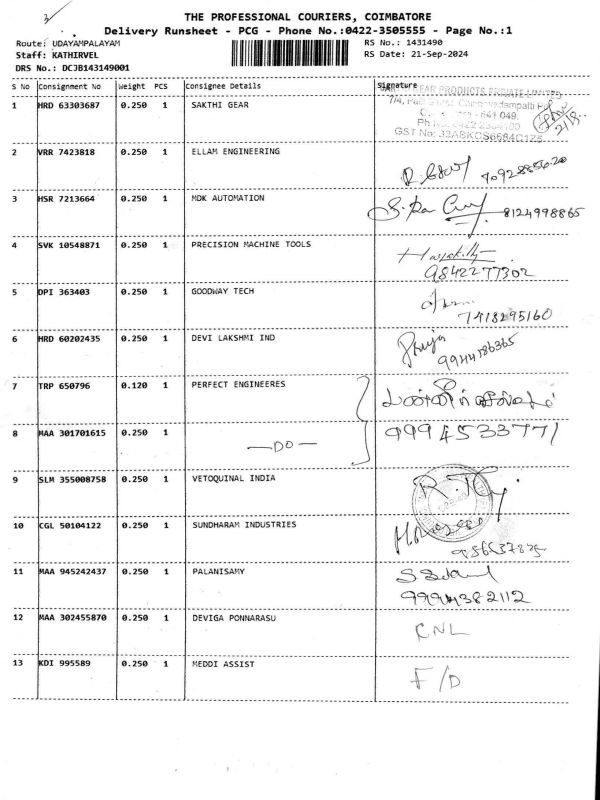 THE PROFESSIONAL COURIERS, COIMBATORE
Delivery Runsheet - PCG - Phone No.:0422-3505555 - Page No.:1
Route: UDAYAMPALAYAM
Staff: KATHIRVEL
DRS No.: DCJB143149001
RS No.: 1431490
RS Date: 21-Sep-2024
S No Consignment No Weight PCS Consignee Details Signature
1 HRD 63303687 0.250 1 SAKTHI GEAR
GEAR PRODUCTS PRIVATE LIMITED
641 049.
GST No: 33
2 VRR 7423818 0.250 1 ELLAM ENGINEERING
3 HSR 7213664 0.250 1 MDK AUTOMATION 8124998865
4 SVK 10548871 0.250 1 PRECISION MACHINE TOOLS
9842277302
5 DPI 363403 0.250 1 GOODWAY TECH
7418295160
6 HRD 60202435 0.250 1 DEVI LAKSHMI IND
9944186365
7 TRP 650796 0.120 1 PERFECT ENGINEERES
8 MAA 301701615 0.250 1 —DO— 9994533771
9 SLM 355008758 0.250 1 VETOQUINAL INDIA
10 CGL 50104122 0.250 1 SUNDHARAM INDUSTRIES
11 MAA 945242437 0.250 1 PALANISAMY
9994382112
12 MAA 302455870 0.250 1 DEVIGA PONNARASU CNL
13 KDI 995589 0.250 1 MEDDI ASSIST F/D